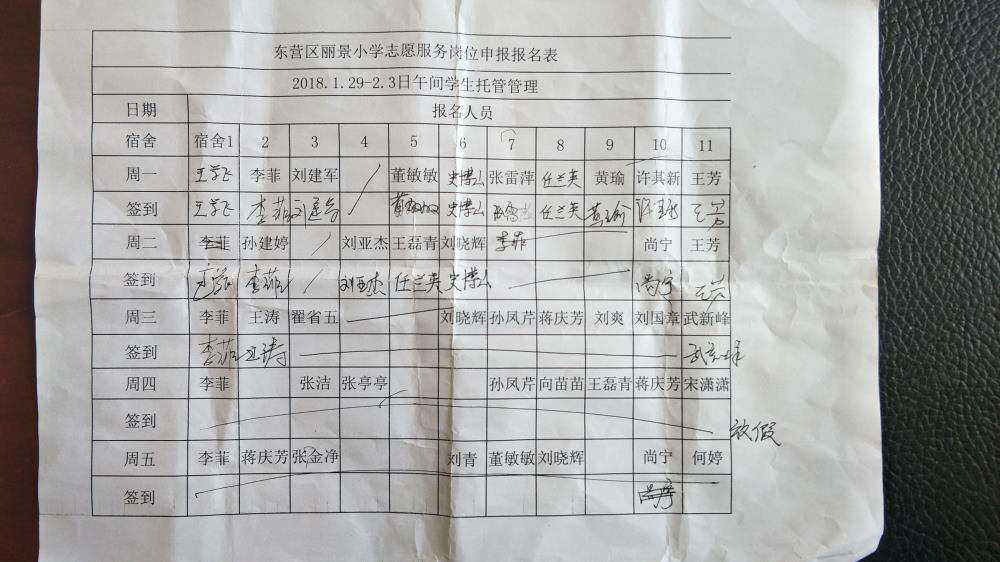 东营区丽景小学志愿服务岗位申报报名表
2018.1.29-2.3日午间学生托管管理
日期 报名人员
宿舍 宿舍1 2 3 4 5 6 7 8 9 10 11
周一 王学飞 李菲 刘建军 董敏敏 史博山 张雷萍 任兰英 黄瑜 许其新 王芳
签到 王学飞 李菲 刘建军 董敏敏 史博山 任兰英 黄瑜 王芳
周二 李菲 孙建婷 刘亚杰 王磊青 刘晓辉 李菲 尚宁 王芳
签到 李菲 刘亚杰 任兰英 史博山 尚宁 王芳
周三 李菲 王涛 翟省五 刘晓辉 孙凤芹 蒋庆芳 刘爽 刘国章 武新峰
签到 李菲 王涛
周四 李菲 张洁 张亭亭 孙凤芹 向苗苗 王磊青 蒋庆芳 宋潇潇
签到
放假
周五 李菲 蒋庆芳 张金净 刘青 董敏敏 刘晓辉 尚宁 何婷
签到